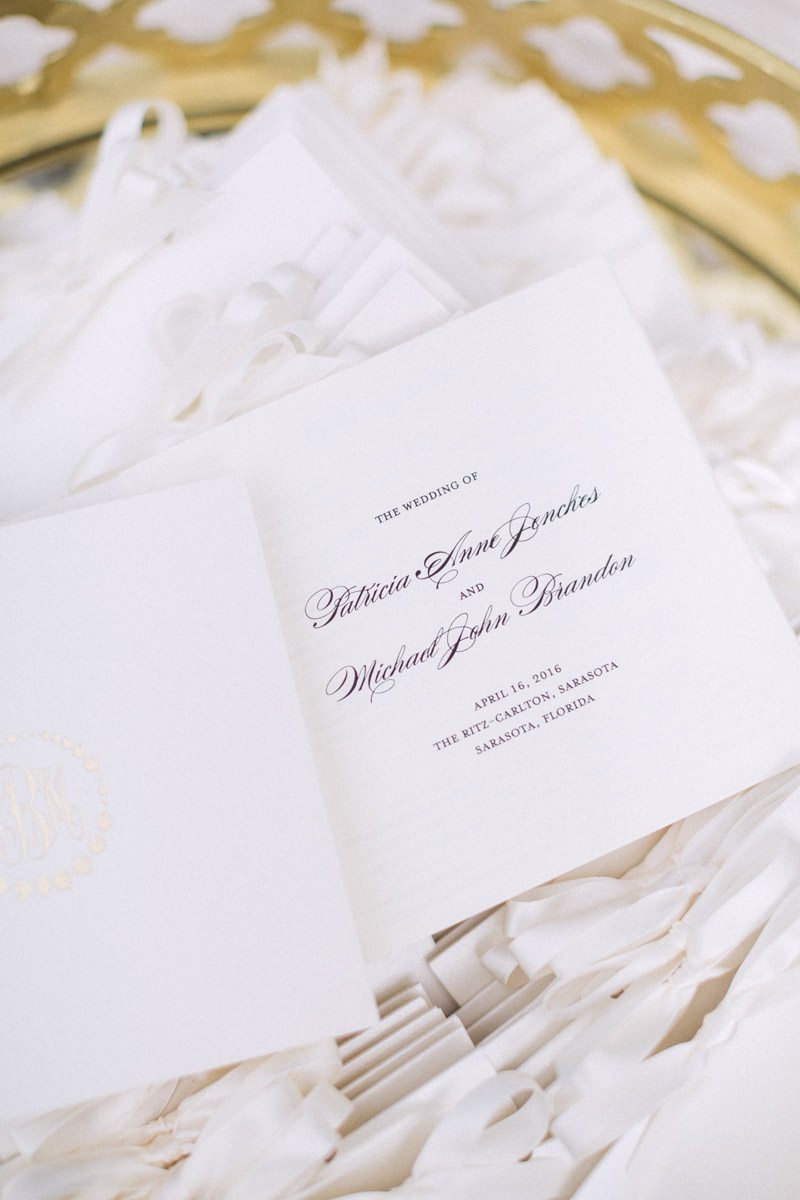 THE WEDDING OF
Patricia Anne Jenches
AND
Michael John Brandon
APRIL 16, 2016
THE RITZ-CARLTON, SARASOTA
SARASOTA, FLORIDA